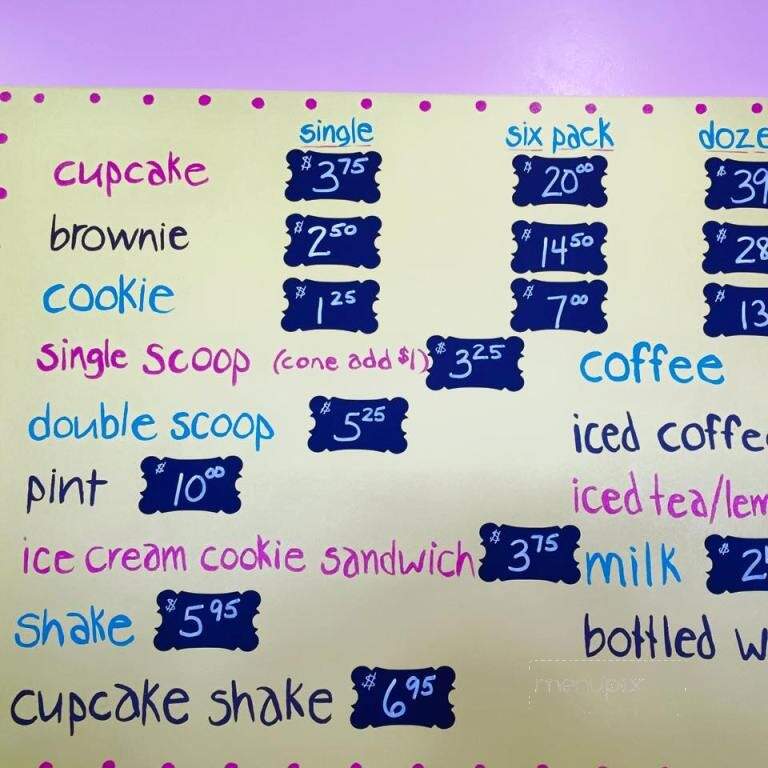 single six pack doze
cupcake $3.75 $20.00 $39
brownie $2.50 $14.50 $28
cookie $1.25 $7.00 $13
single scoop (cone add $1) $3.25 coffee
double scoop $5.25 iced coffee
pint $10.00 iced tea/lem
ice cream cookie sandwich $3.75 milk $2
shake $5.95 bottled w
cupcake shake $6.95
menupix